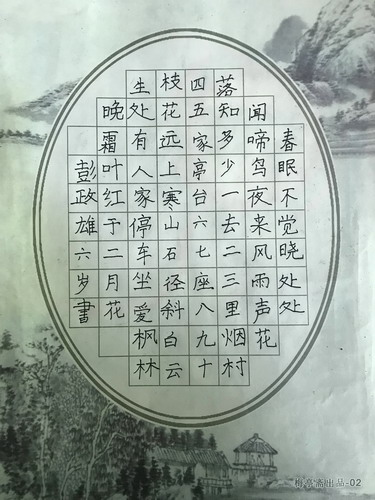 春眠不觉晓处处
闻啼鸟夜来风雨声花
落知多少一去二三里烟村
四五家亭台六七座八九十
枝花远上寒山石径斜白云
生处有人家停车坐爱枫林
晚霜叶红于二月花
彭政雄六岁書